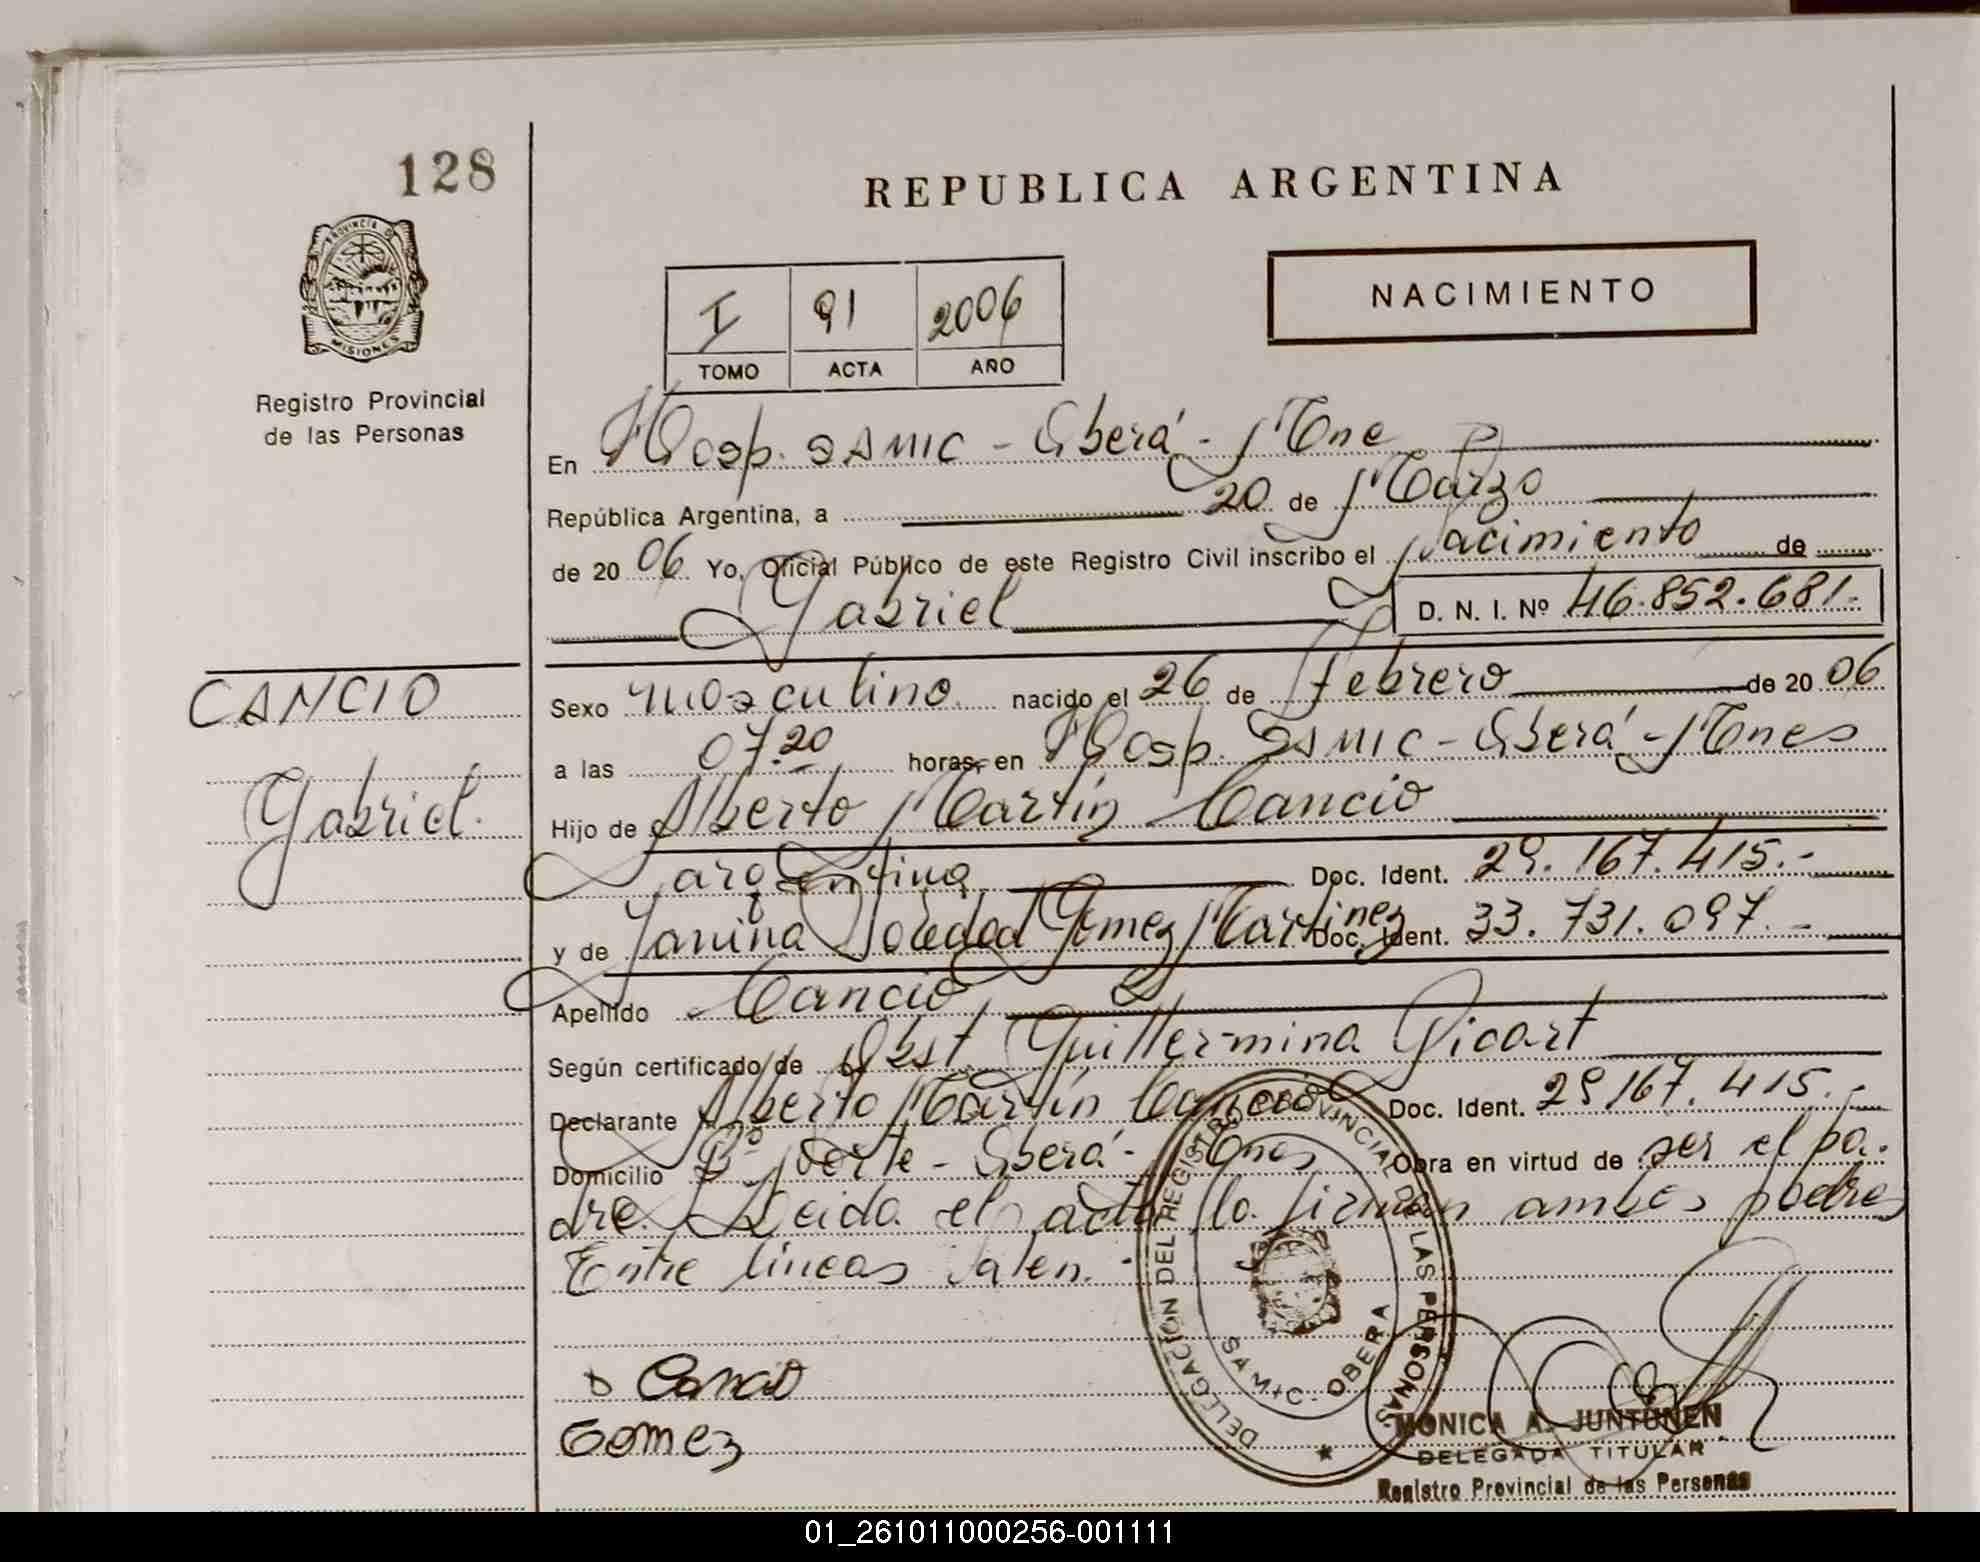 128
REPUBLICA ARGENTINA
PROVINCIA DE
MISIONES
Registro Provincial
de las Personas
I 91 2006
TOMO ACTA AÑO
NACIMIENTO
En Hosp. SAMIC - Oberá - Mnes
República Argentina, a 20 de Marzo
de 20 06 Yo, Oficial Público de este Registro Civil inscribo el Nacimiento de
Gabriel D. N. I. Nº 46.852.681.-
CANCIO
Gabriel.
Sexo Masculino nacido el 26 de Febrero de 20 06
a las 07.20 horas, en Hosp. SAMIC - Oberá - Mnes
Hijo de Alberto Martín Cancio
argentino Doc. Ident. 29.167.415.-
y de Yanina Soledad Gomez Martinez Doc. Ident. 33.731.097.-
Apellido Cancio
Según certificado de Obst. Guillermina Picart
Declarante Alberto Martín Cancio Doc. Ident. 29167.415.-
Domicilio Bº Norte - Oberá - Mnes Obra en virtud de ser el pa-
dre. Leida el acta la firman ambos padres
Entre líneas valen.-
DELEGACIÓN DEL REGISTRO PROVINCIAL DE LAS PERSONAS
SAMIC - OBERA
Cancio
Gomez
MONICA A. JUNTUNEN
DELEGADA TITULAR
Registro Provincial de las Personas
01_261011000256-001111